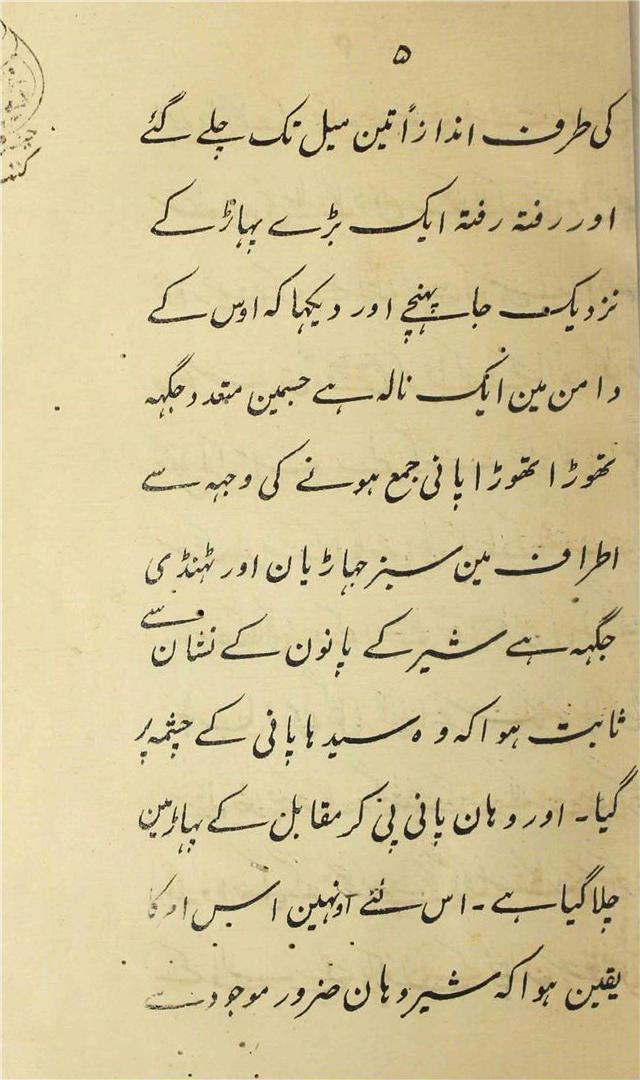 ۵
کی طرف اندازاً تین میل تک چلے گئے
اور رفتہ رفتہ ایک بڑے پہاڑ کے
نزدیک جا پہنچے اور دیکہا کہ اوس کے
دامن مین ایک نالہ ہے جسمین متعدد جگہہ
تھوڑا تھوڑا پانی جمع ہونے کی وجہہ سے
اطراف مین سبز جہاڑیان اور ٹہنڈی
جگہہ ہے شیر کے پانون کے نشان سے
ثابت ہوا کہ وہ سیدہا پانی کے چشمہ پر
گیا۔ اور وہان پانی پی کر مقابل کے پہاڑ مین
چلا گیا ہے۔ اس لئے اونہین اس امر کا
یقین ہوا کہ شیر وہان ضرور موجود ہے